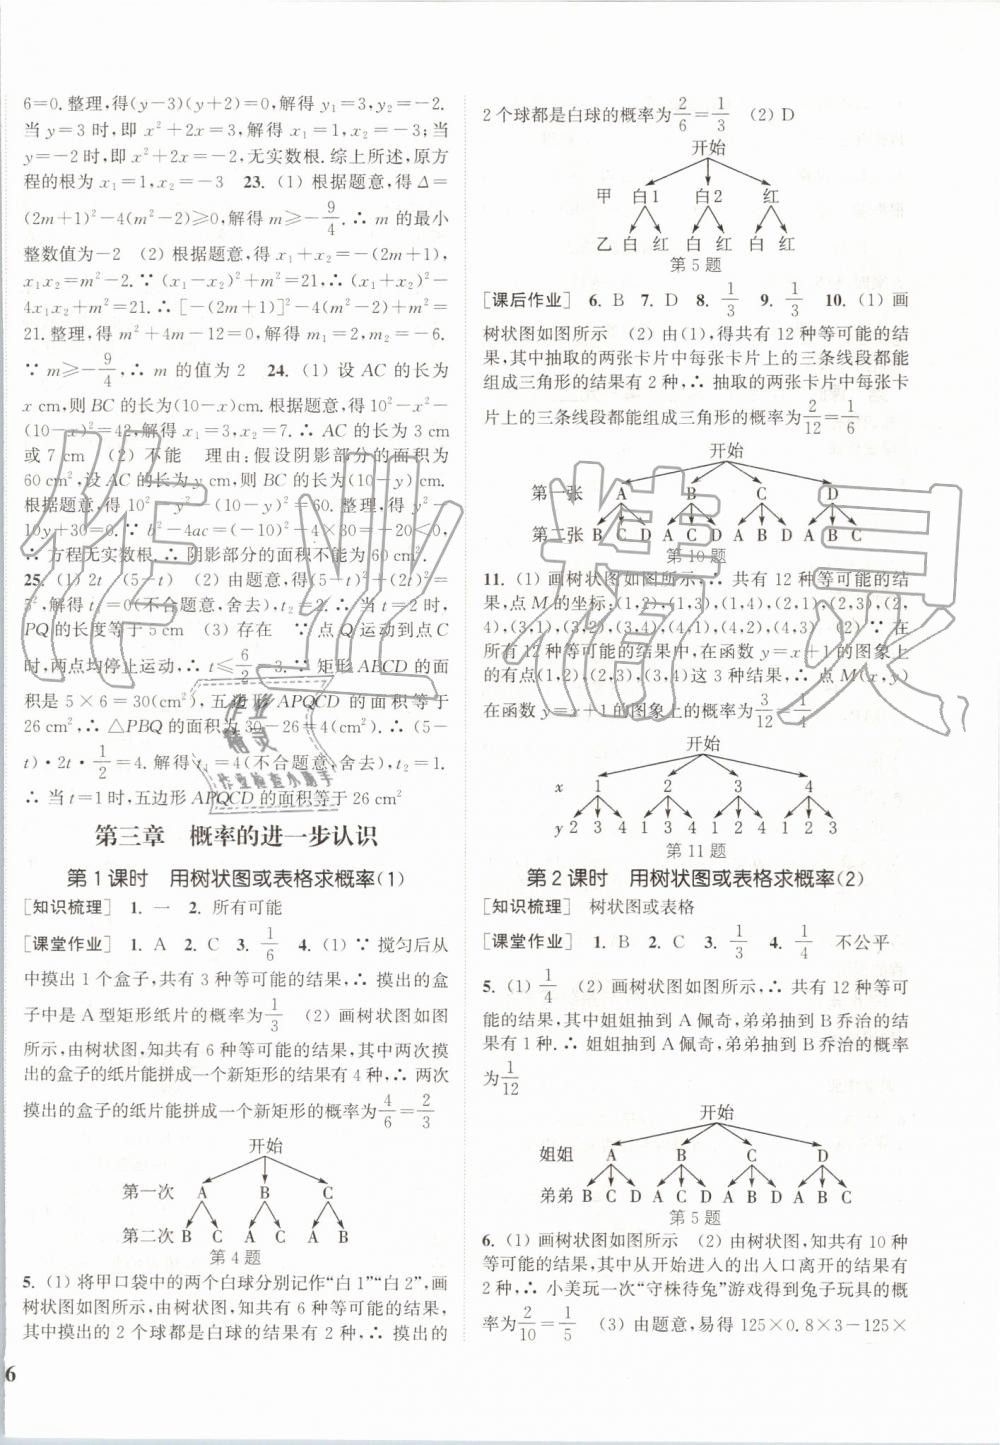 6=0.整理,得(y-3)(y+2)=0,解得 y₁=3,y₂=-2.
当 y=3 时,即 x²+2x=3,解得 x₁=1,x₂=-3;当
y=-2时,即 x²+2x=-2,无实数根.综上所述,原方
程的根为 x₁=1,x₂=-3 23. (1) 根据题意,得 Δ=
(2m+1)²-4(m²-2)≥0,解得 m≥-9/4.∴ m 的最小
整数值为-2 (2) 根据题意,得 x₁+x₂=-(2m+1),
x₁x₂=m²-2.∵ (x₁-x₂)²+m²=21,∴ (x₁+x₂)²-
4x₁x₂+m²=21.∴ [-(2m+1)]²-4(m²-2)+m²=
21.整理,得 m²+4m-12=0,解得 m₁=2,m₂=-6.
∵ m≥-9/4,∴ m 的值为 2 24. (1) 设 AC 的长为
x cm,则 BC 的长为(10-x)cm.根据题意,得 10²-x²-
(10-x)²=42,解得 x₁=3,x₂=7.∴ AC 的长为 3 cm
或 7 cm (2) 不能 理由:假设阴影部分的面积为
60 cm²,设 AC 的长为 y cm,则 BC 的长为(10-y)cm.
根据题意,得 10²-y²-(10-y)²=60.整理,得 y²-
10y+30=0.∵ b²-4ac=(-10)²-4×30=-20<0,
∴ 方程无实数根.∴ 阴影部分的面积不能为 60 cm²
25. (1) 2t (5-t) (2) 由题意,得(5-t)²+(2t)²=
5²,解得 t₁=0(不合题意,舍去),t₂=2.∴ 当 t=2 时,
PQ 的长度等于 5 cm (3) 存在 ∵ 点 Q 运动到点 C
时,两点均停止运动,∴ t≤6/2=3.∵ 矩形 ABCD 的面
积是 5×6=30(cm²),五边形 APQCD 的面积等于
26 cm²,∴ △PBQ 的面积为 30-26=4(cm²).∴ (5-
t)·2t·1/2=4.解得 t₁=4(不合题意,舍去),t₂=1.
∴ 当 t=1 时,五边形 APQCD 的面积等于 26 cm²
第三章 概率的进一步认识
第 1 课时 用树状图或表格求概率(1)
[知识梳理] 1. 一 2. 所有可能
[课堂作业] 1. A 2. C 3. 1/6 4. (1) ∵ 搅匀后从
中摸出 1 个盒子,共有 3 种等可能的结果,∴ 摸出的盒
子中是 A 型矩形纸片的概率为1/3 (2) 画树状图如图
所示,由树状图,知共有 6 种等可能的结果,其中两次摸
出的盒子的纸片能拼成一个新矩形的结果有 4 种,∴ 两次
摸出的盒子的纸片能拼成一个新矩形的概率为4/6=2/3
开始
第一次 A B C
第二次 B C A C A B
第 4 题
5. (1) 将甲口袋中的两个白球分别记作“白 1”“白 2”,画
树状图如图所示,由树状图,知共有 6 种等可能的结果,
其中摸出的 2 个球都是白球的结果有 2 种,∴ 摸出的
6
2 个球都是白球的概率为2/6=1/3 (2) D
开始
甲 白1 白2 红
乙 白 红 白 红 白 红
第 5 题
[课后作业] 6. B 7. D 8. 1/3 9. 1/3 10. (1) 画
树状图如图所示 (2) 由(1),得共有 12 种等可能的结
果,其中抽取的两张卡片中每张卡片上的三条线段都能
组成三角形的结果有 2 种,∴ 抽取的两张卡片中每张卡
片上的三条线段都能组成三角形的概率为2/12=1/6
开始
第一张 A B C D
第二张 B C D A C D A B D A B C
第 10 题
11. (1) 画树状图如图所示,∴ 共有 12 种等可能的结
果,点 M 的坐标:(1,2),(1,3),(1,4),(2,1),(2,3),(2,
4),(3,1),(3,2),(3,4),(4,1),(4,2),(4,3) (2) ∵ 在
所有 12 种等可能的结果中,在函数 y=x+1 的图象上
的有点(1,2),(2,3),(3,4)这 3 种结果,∴ 点 M(x,y)
在函数 y=x+1 的图象上的概率为3/12=1/4
开始
x 1 2 3 4
y 2 3 4 1 3 4 1 2 4 1 2 3
第 11 题
第 2 课时 用树状图或表格求概率(2)
[知识梳理] 树状图或表格
[课堂作业] 1. B 2. C 3. 1/3 4. 1/4 不公平
5. (1) 1/4 (2) 画树状图如图所示,∴ 共有 12 种等可
能的结果,其中姐姐抽到 A 佩奇,弟弟抽到 B 乔治的结
果有 1 种.∴ 姐姐抽到 A 佩奇,弟弟抽到 B 乔治的概率
为1/12
开始
姐姐 A B C D
弟弟 B C D A C D A B D A B C
第 5 题
6. (1) 画树状图如图所示 (2) 由树状图,知共有 10 种
等可能的情况,其中从开始进入的出入口离开的结果有
2 种,∴ 小美玩一次“守株待兔”游戏得到兔子玩具的概
率为2/10=1/5 (3) 由题意,易得 125×0.8×3-125×
作业精灵
作业
精灵
作业检查小助手